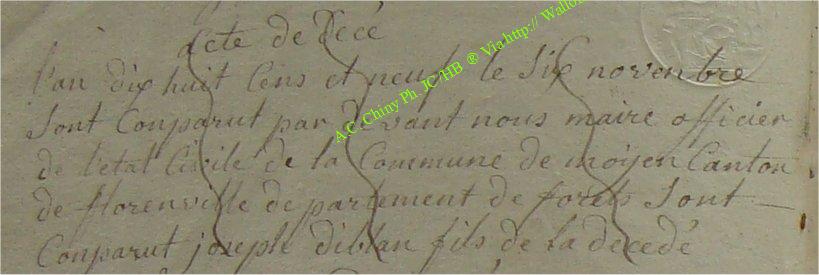 acte de Decé
l'an dix huit Cens et neuf le six novenbre
Sont Conparut par devant nous maire officier
de l'etat Civile de la Commune de moyen Canton
de florenville departement de forets Sont
Conparut joseph diblan fils de la decedé
A.C. Chiny Ph JC HB ® Via http:// Wallon